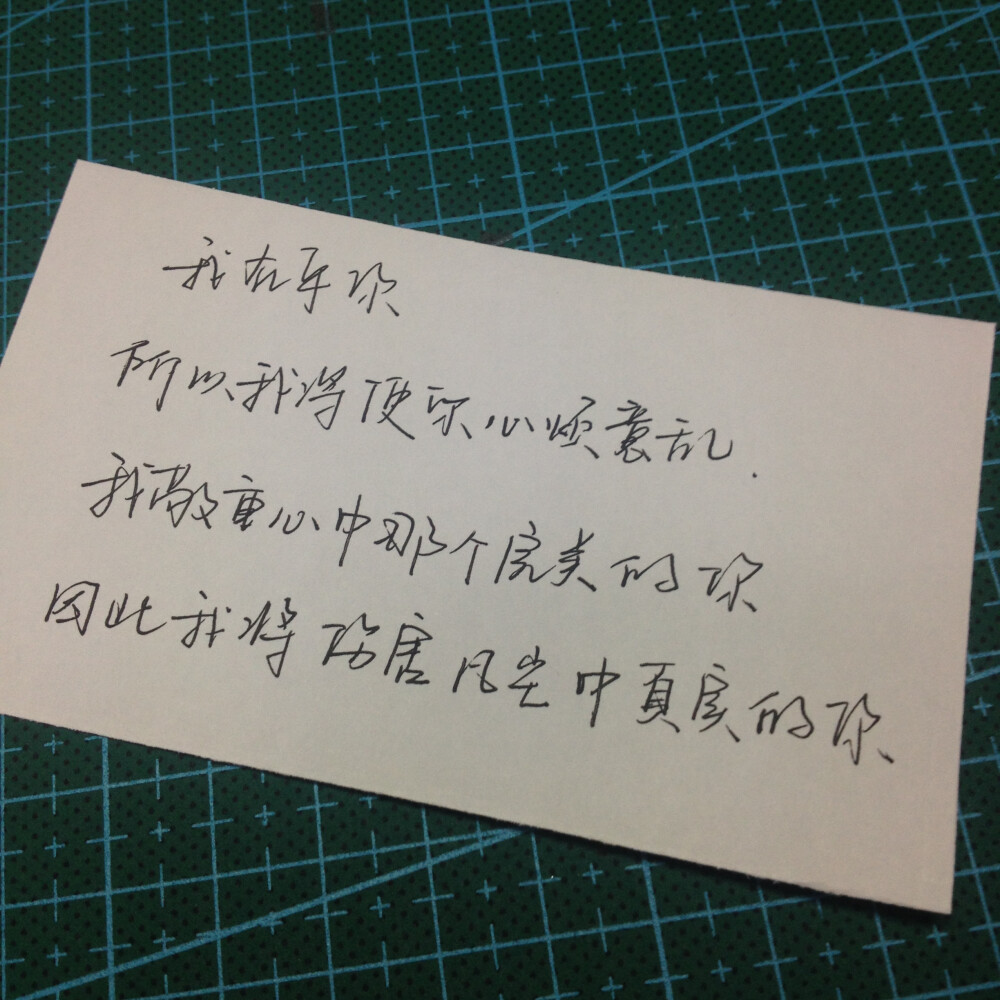 我在乎你
所以我将使你心烦意乱.
我敬重心中那个完美的你
因此我将伤害凡尘中真实的你、